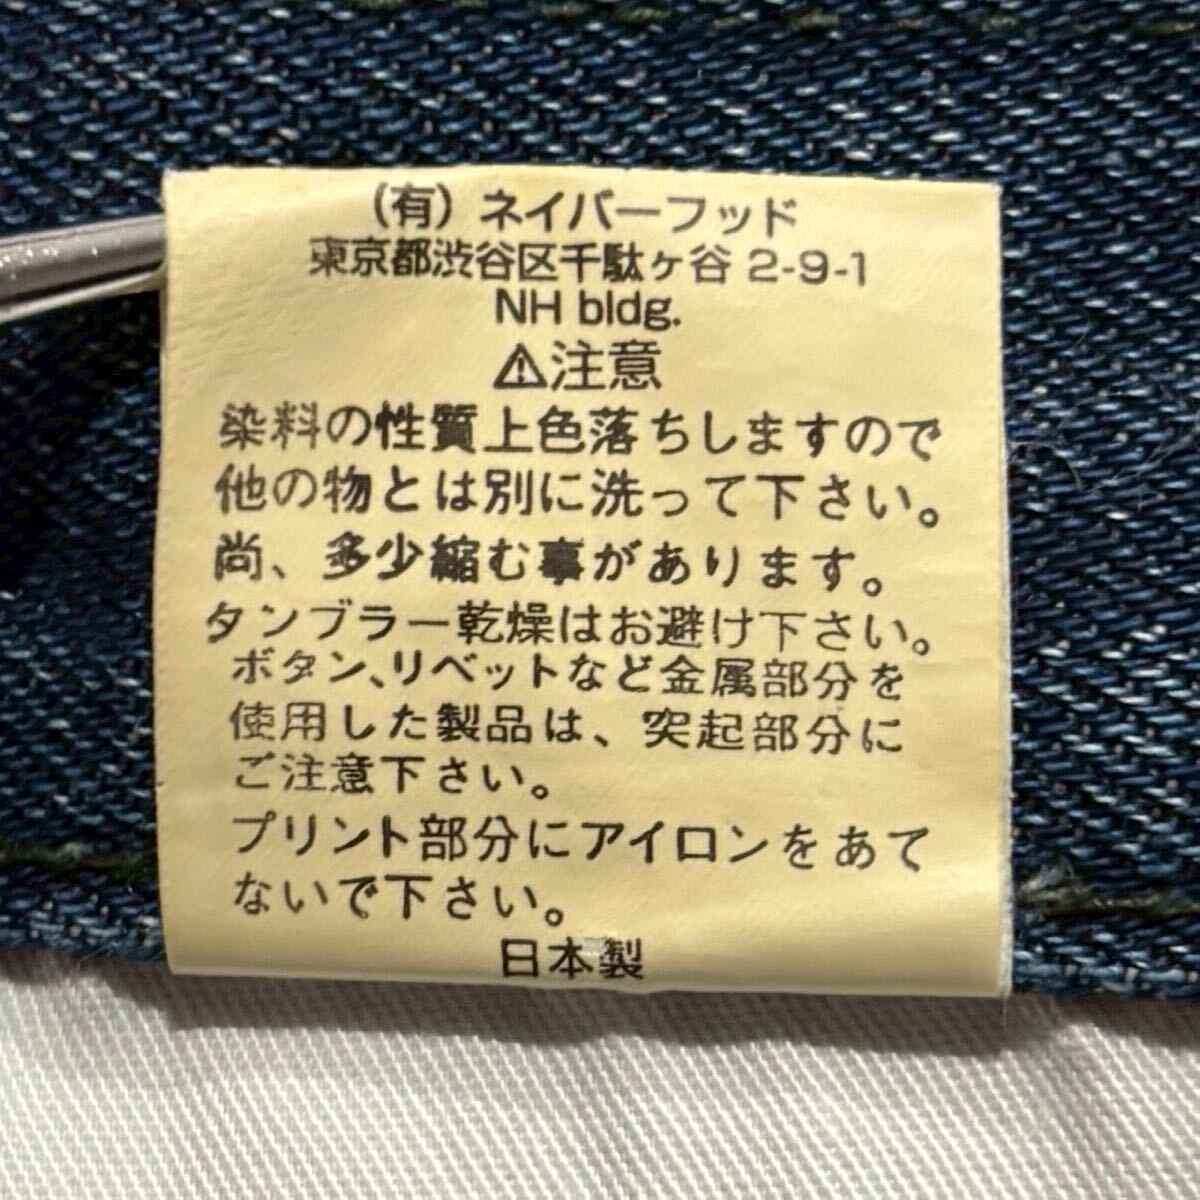 (有) ネイバーフッド
東京都渋谷区千駄ヶ谷 2-9-1
NH bldg.
⚠注意
染料の性質上色落ちしますので
他の物とは別に洗って下さい。
尚、多少縮む事があります。
タンブラー乾燥はお避け下さい。
ボタン､リベットなど金属部分を
使用した製品は、突起部分に
ご注意下さい。
プリント部分にアイロンをあて
ないで下さい。
日本製